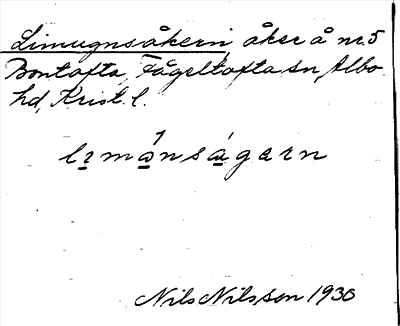 Limugnsåkern åker å nr 5
Bontofta, Fågeltofta sn, Albo
hd, Krist. l.
lɪmånságarn
Nils Nilsson 1930